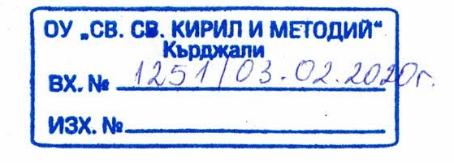 ОУ „СВ. СВ. КИРИЛ И МЕТОДИЙ“
Кърджали
ВХ. № 1251/03.02.2020г.
ИЗХ. №